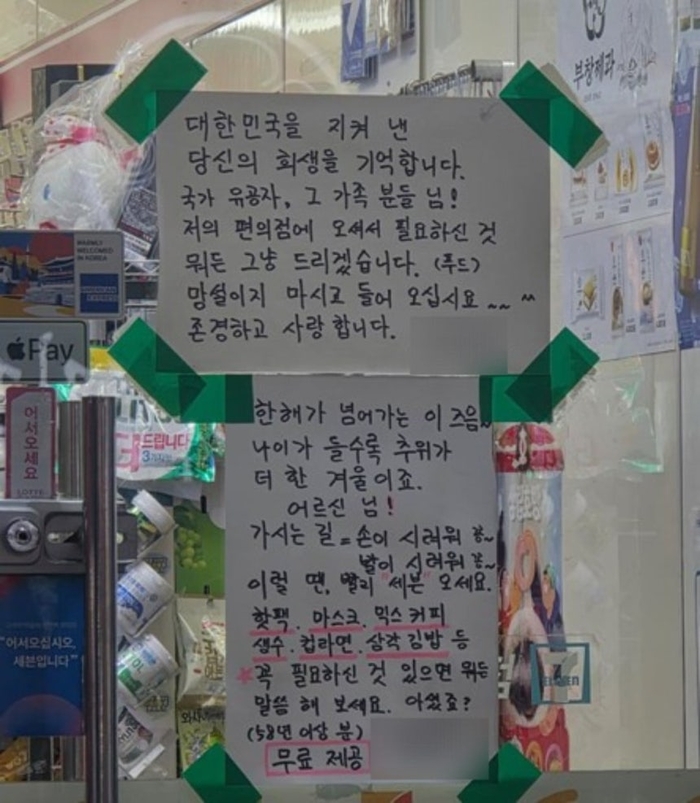 대한민국을 지켜 낸
당신의 희생을 기억합니다.
국가 유공자, 그 가족 분들 님!
저의 편의점에 오셔서 필요하신 것
뭐든 그냥 드리겠습니다. (푸드)
망설이지 마시고 들어 오십시요 ~~ ^^
존경하고 사랑합니다.
한해가 넘어가는 이즈음~
나이가 들수록 추위가
더 한 겨울이죠.
어르신 님!
가시는 길 = 손이 시려워 꽁~
발이 시려워 꽁~
이럴 땐, 빨리 "세븐" 오세요.
핫팩. 마스크. 믹스커피
생수. 컵라면. 삼각김밥 등
꼭 필요하신 것 있으면 뭐든
말씀 해 보세요. 아셨죠?
(58년 이상 분)
무료 제공
부창제과
WARMLY
WELCOMED
IN KOREA
AMERICAN
EXPRESS
Pay
어서오세요
LOTTE
드립니다
"어서오십시오,
세븐입니다"